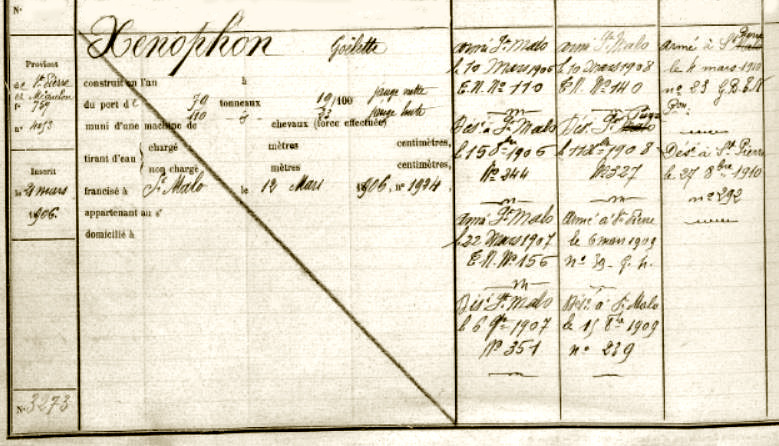 N.
Xenophon Goëlette
Provient
de St. Pierre
et Miquelon
fo 759
no 4053
construit en l'an à
du port de 70 tonneaux 19/100 jauge nette
110 d° jauge brute
muni d'une machine de chevaux (force effectuée)
tirant d'eau { chargé mètres centimètres,
non chargé mètres centimètres,
francisé à St Malo le 12 Mars 1906, no 1924,
appartenant au sr
domicilié à
Inscrit
le 21 mars
1906.
N. 3273
armé St. Malo
le 10 Mars 1906
E.N. No 110
Dés. à St. Malo
le 15 8bre 1906
No 244
armé St. Malo
le 22 Mars 1907
E.N. No 156
Dés. St. Malo
le 6 9bre 1907
No 351
armé St. Malo
le 10 Mars 1908
E.N. No 140
Dés. St. Malo
1908
No 327
Armé à St Pierre
le 6 mars 1909
no 39
Dés. à St. Malo
le 15 8bre 1909
no 239
armé à St Malo Pierre
le 4 mars 1910
no 23
Dés. à St. Pierre
le 27 8bre 1910
no 292